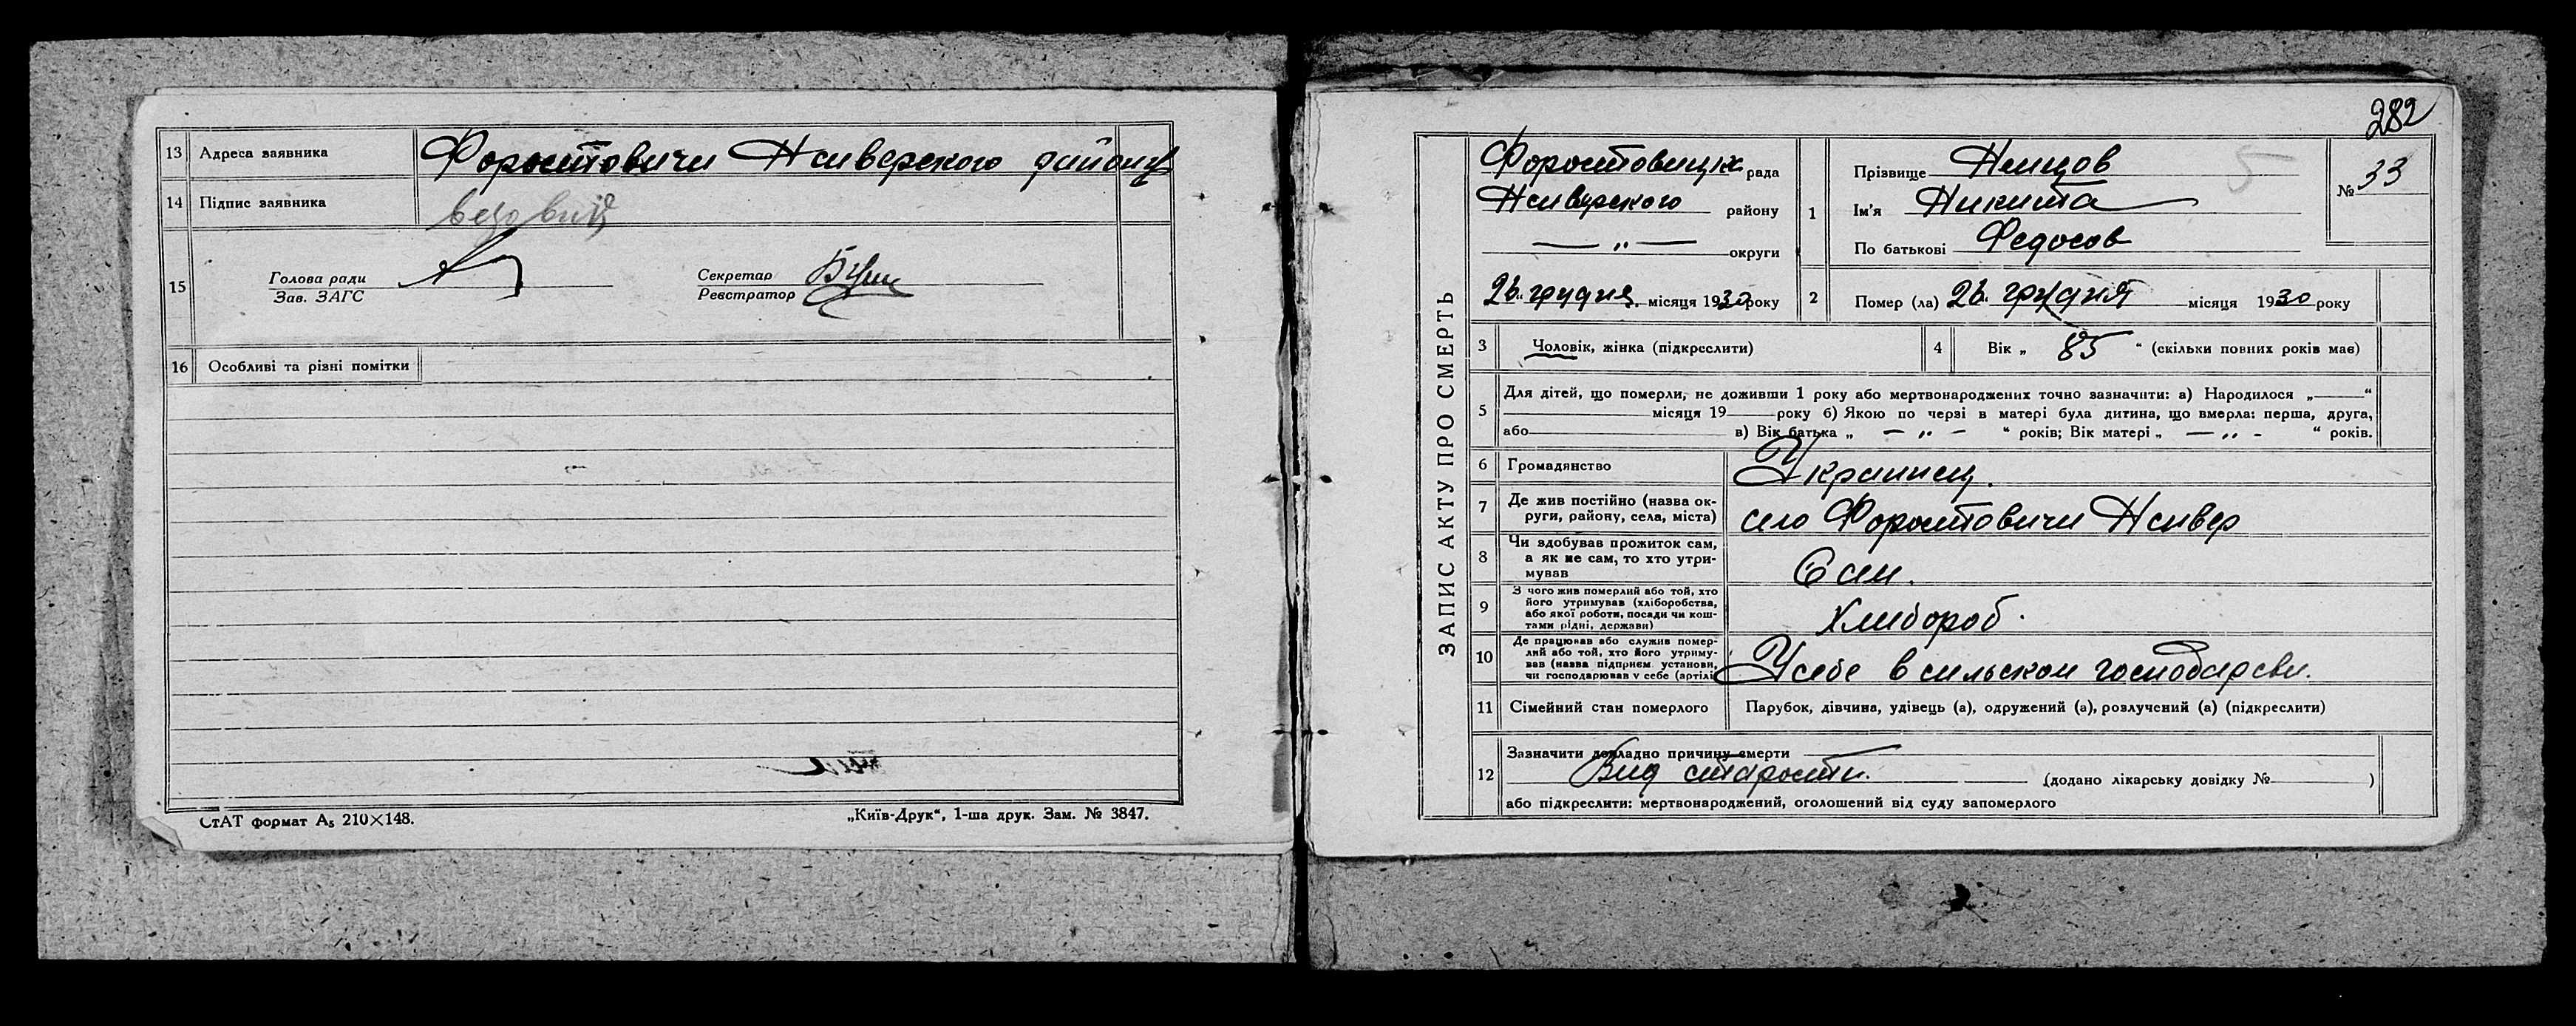 13 Адреса заявника Форостовичи Нсиверского району
14 Підпис заявника
15 Голова ради
Зав. ЗАГС
Секретар
Реєстратор
16 Особливі та різні помітки
СтАТ формат А₅ 210×148.
„Київ-Друк“, 1-ша друк. Зам. № 3847.
282
ЗАПИС АКТУ ПРО СМЕРТЬ
Форостовицка рада
Нсиверского району
— „ — округи
26 грудня місяця 1930 року
1 Прізвище Немцов
Ім'я Никита
По батькові Федосов
№ 33
2 Помер (ла) 26 грудня місяця 1930 року
3 Чоловік, жінка (підкреслити)
4 Вік „ 85 “ (скільки повних років має)
5 Для дітей, що померли, не доживши 1 року або мертвонароджених точно зазначити: а) Народилося „ “
місяця 19 року б) Якою по черзі в матері була дитина, що вмерла: перша, друга,
або в) Вік батька „ — „ — “ років; Вік матері „ — „ - “ років.
6 Громадянство Украинец.
7 Де жив постійно (назва ок-
руги, району, села, міста) село Форостовичи Нсивер
8 Чи здобував прожиток сам,
а як не сам, то хто утри-
мував Сам.
9 З чого жив померлий або той, хто
його утримував (хліборобства,
або якої роботи, посади чи кош-
тами рідні, держави) Хлибороб.
10 Де працював або служив помер-
лий або той, хто його утриму-
вав (назва підприєм. установи,
чи господарював у себе (артілі) Усебе в сильском господарсви.
11 Сімейний стан померлого Парубок, дівчина, удівець (а), одружений (а), розлучений (а) (підкреслити)
12 Зазначити докладно причину смерти
Вид старости. (додано лікарську довідку № )
або підкреслити: мертвонароджений, оголошений від суду запомерлого